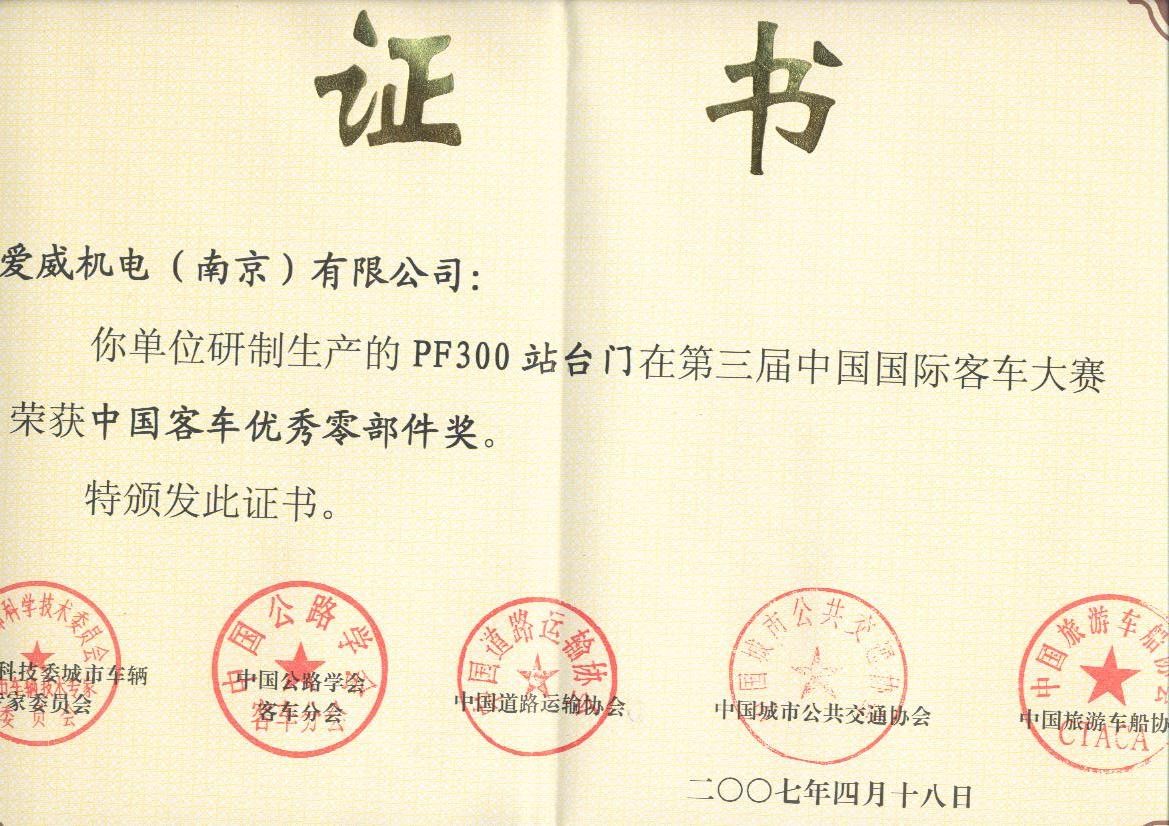 证书
爱威机电（南京）有限公司：
你单位研制生产的PF300站台门在第三届中国国际客车大赛
荣获中国客车优秀零部件奖。
特颁发此证书。
科学技术委员会
市车辆技术专家
委员会
科技委城市车辆
家委员会
中国公路学会
客车分会
中国公路学会
客车分会
中国道路运输协会
中国道路运输协会
中国城市公共交通协会
中国城市公共交通协会
中国旅游车船协会
CTACA
中国旅游车船协
二〇〇七年四月十八日